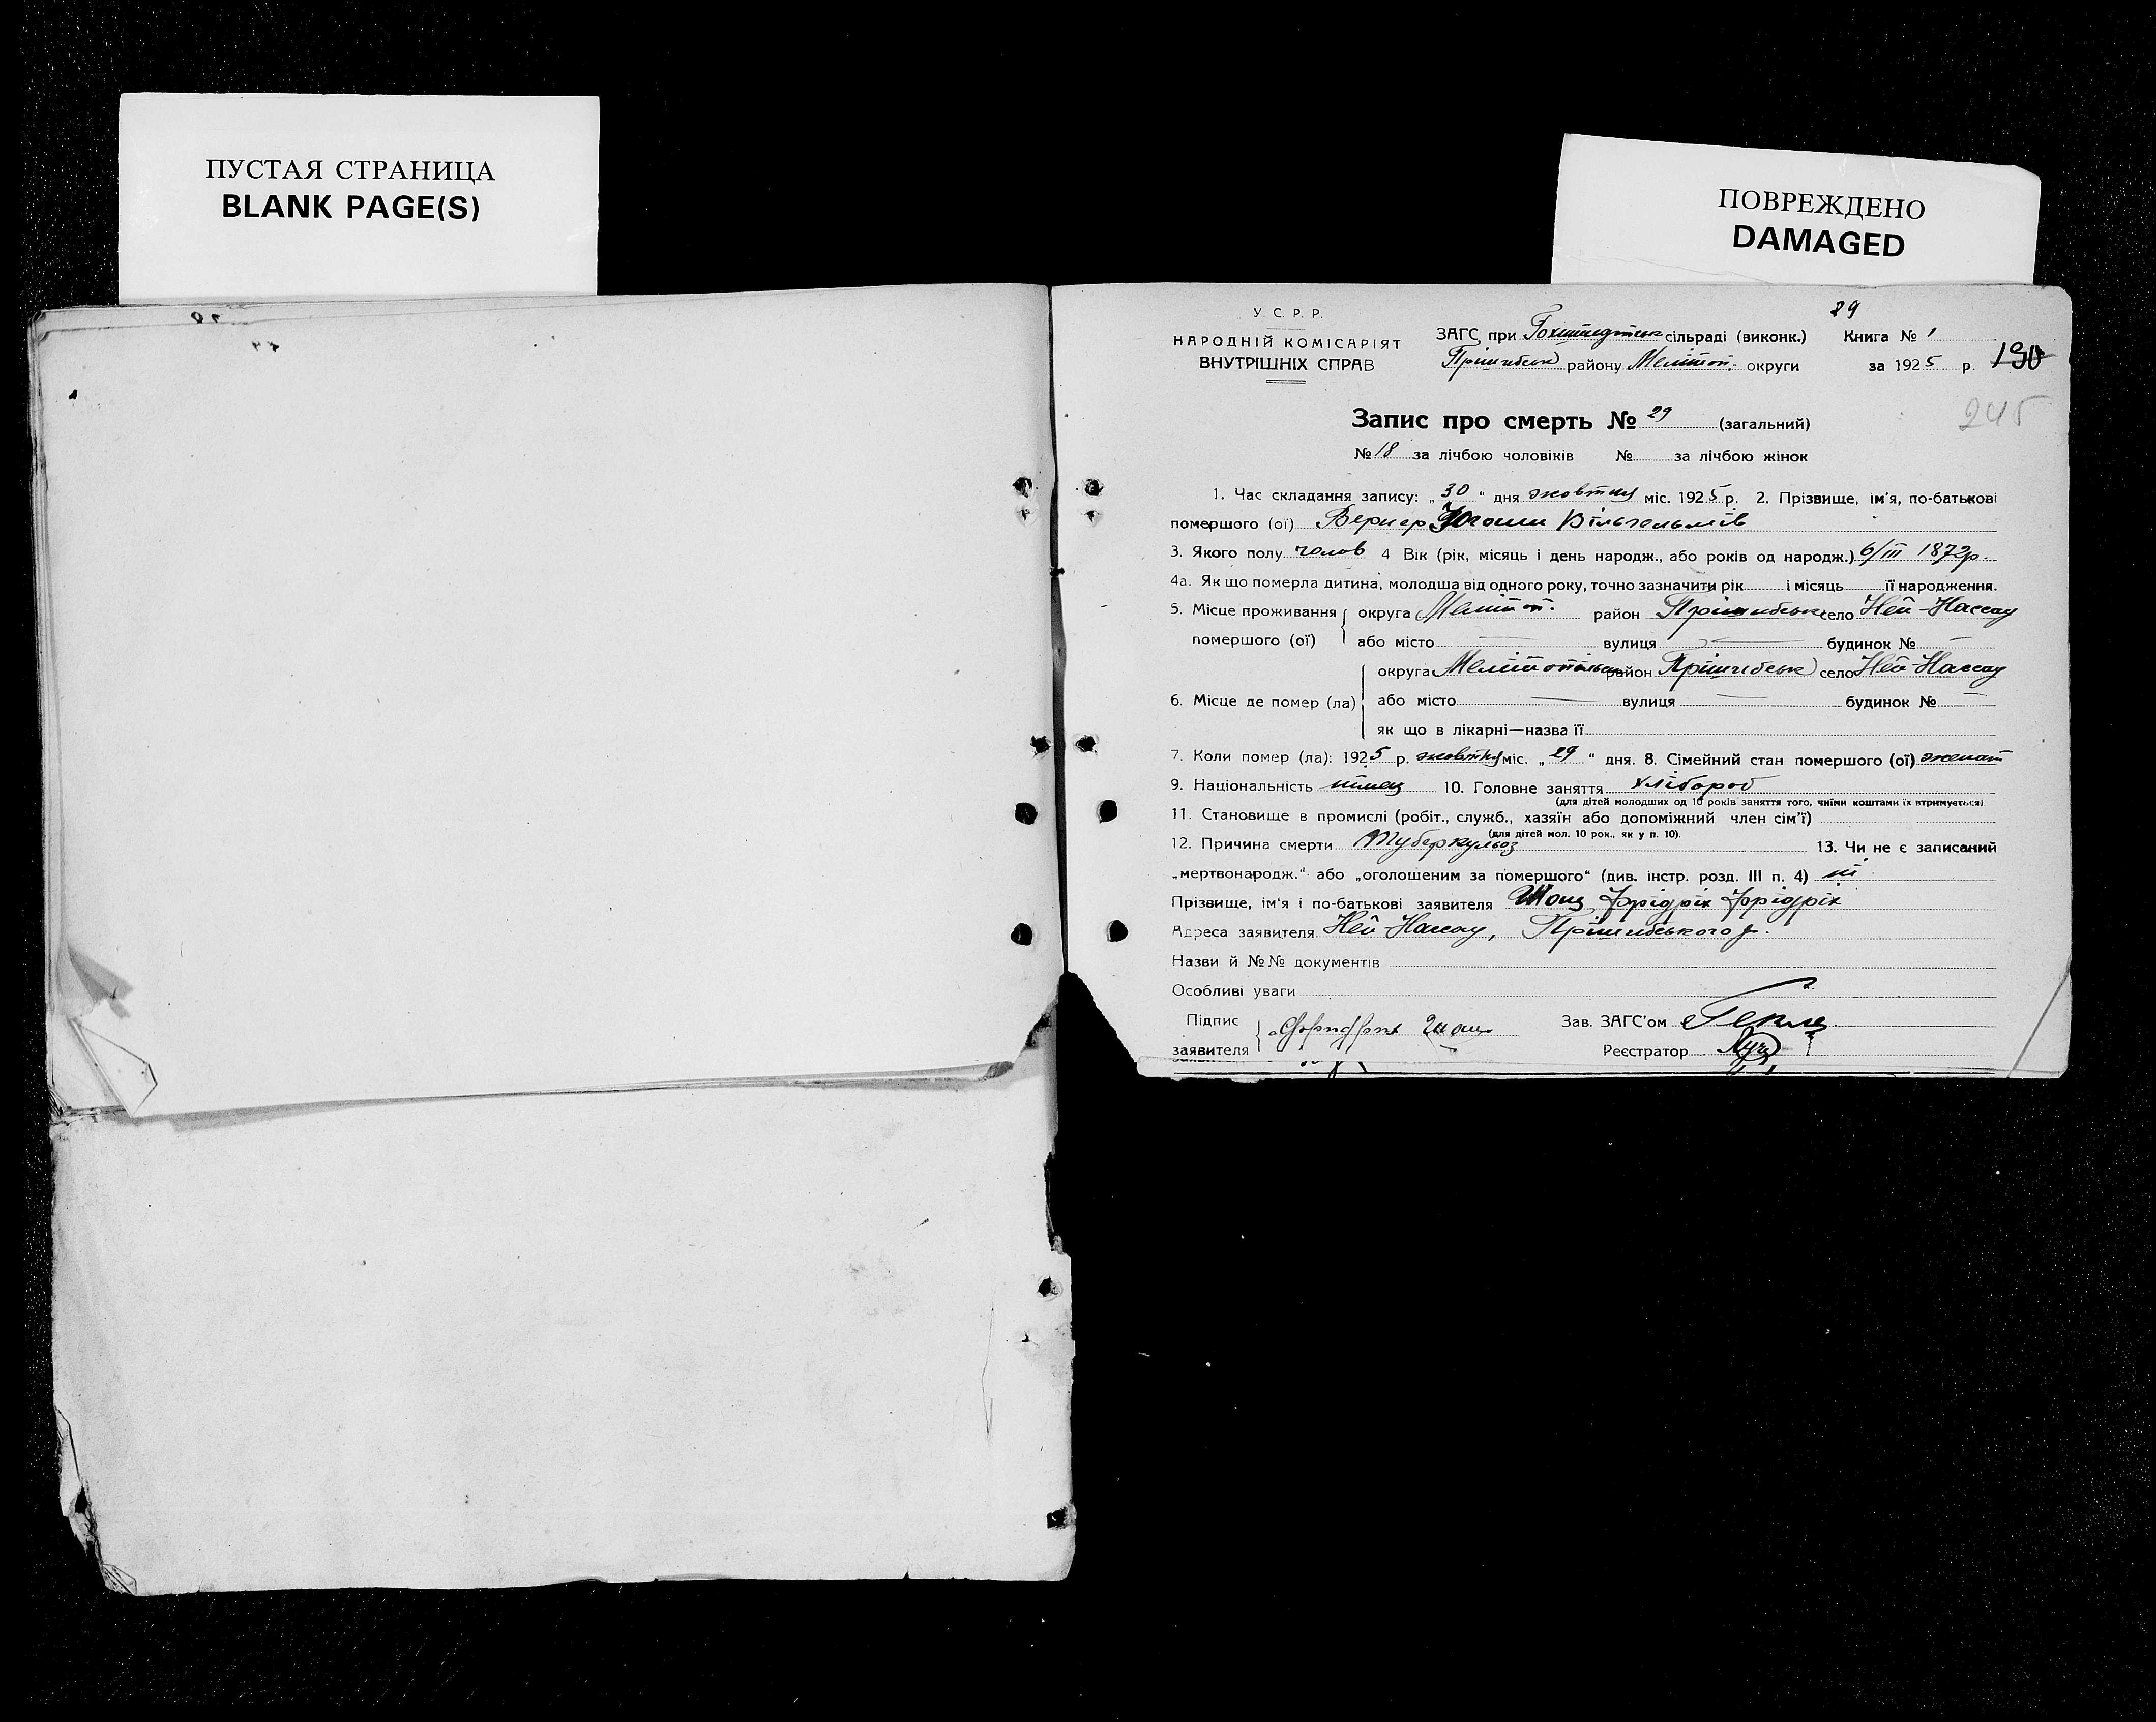 ПУСТАЯ СТРАНИЦА
BLANK PAGE(S)
ПОВРЕЖДЕНО
DAMAGED
29
У. С. Р. Р.
НАРОДНІЙ КОМІСАРІЯТ
ВНУТРІШНІХ СПРАВ
ЗАГС при Гохштедтськ сільраді (виконк.) Книга № 1
Прішибськ району Меліт оп. округи за 1925 р. 190
245
Запис про смерть № 29 (загальний)
№ 18 за лічбою чоловіків № за лічбою жінок
1. Час складання запису: „30“ дня жовтня міс. 1925 р. 2. Прізвище, ім'я, по-батькові
помершого (ої) Вернер Йоганн Вільгельмів
3. Якого полу чолов 4 Вік (рік, місяць і день народж., або років од народж.) 6/III 1872р.
4а. Як що померла дитина, молодша від одного року, точно зазначити рік і місяць її народження.
5. Місце проживання помершого (ої) округа Меліт оп. район Прішибськ село Ней-Нассау
або місто вулиця будинок №
6. Місце де помер (ла) округа Мелітопільськ район Прішибськ село Ней-Нассау
або місто вулиця будинок №
як що в лікарні—назва її
7. Коли помер (ла): 1925 р. жовтня міс. „29“ дня. 8. Сімейний стан помершого (ої) женат
9. Національність німец 10. Головне заняття хлібороб
(для дітей молодших од 10 років заняття того, чиїми коштами їх втримується).
11. Становище в промислі (робіт., служб., хазяїн або допоміжний член сім'ї)
(для дітей мол. 10 рок., як у п. 10).
12. Причина смерти туберкульоз 13. Чи не є записаний
„мертвонародж.“ або „оголошеним за помершого“ (див. інстр. розд. III п. 4) ні
Прізвище, ім'я і по-батькові заявителя Шонц Фрідріх Фрідріх
Адреса заявителя Ней-Нассау, Прішибського р.
Назви й №№ документів
Особливі уваги
Підпис заявителя Зав. ЗАГС'ом
Реєстратор